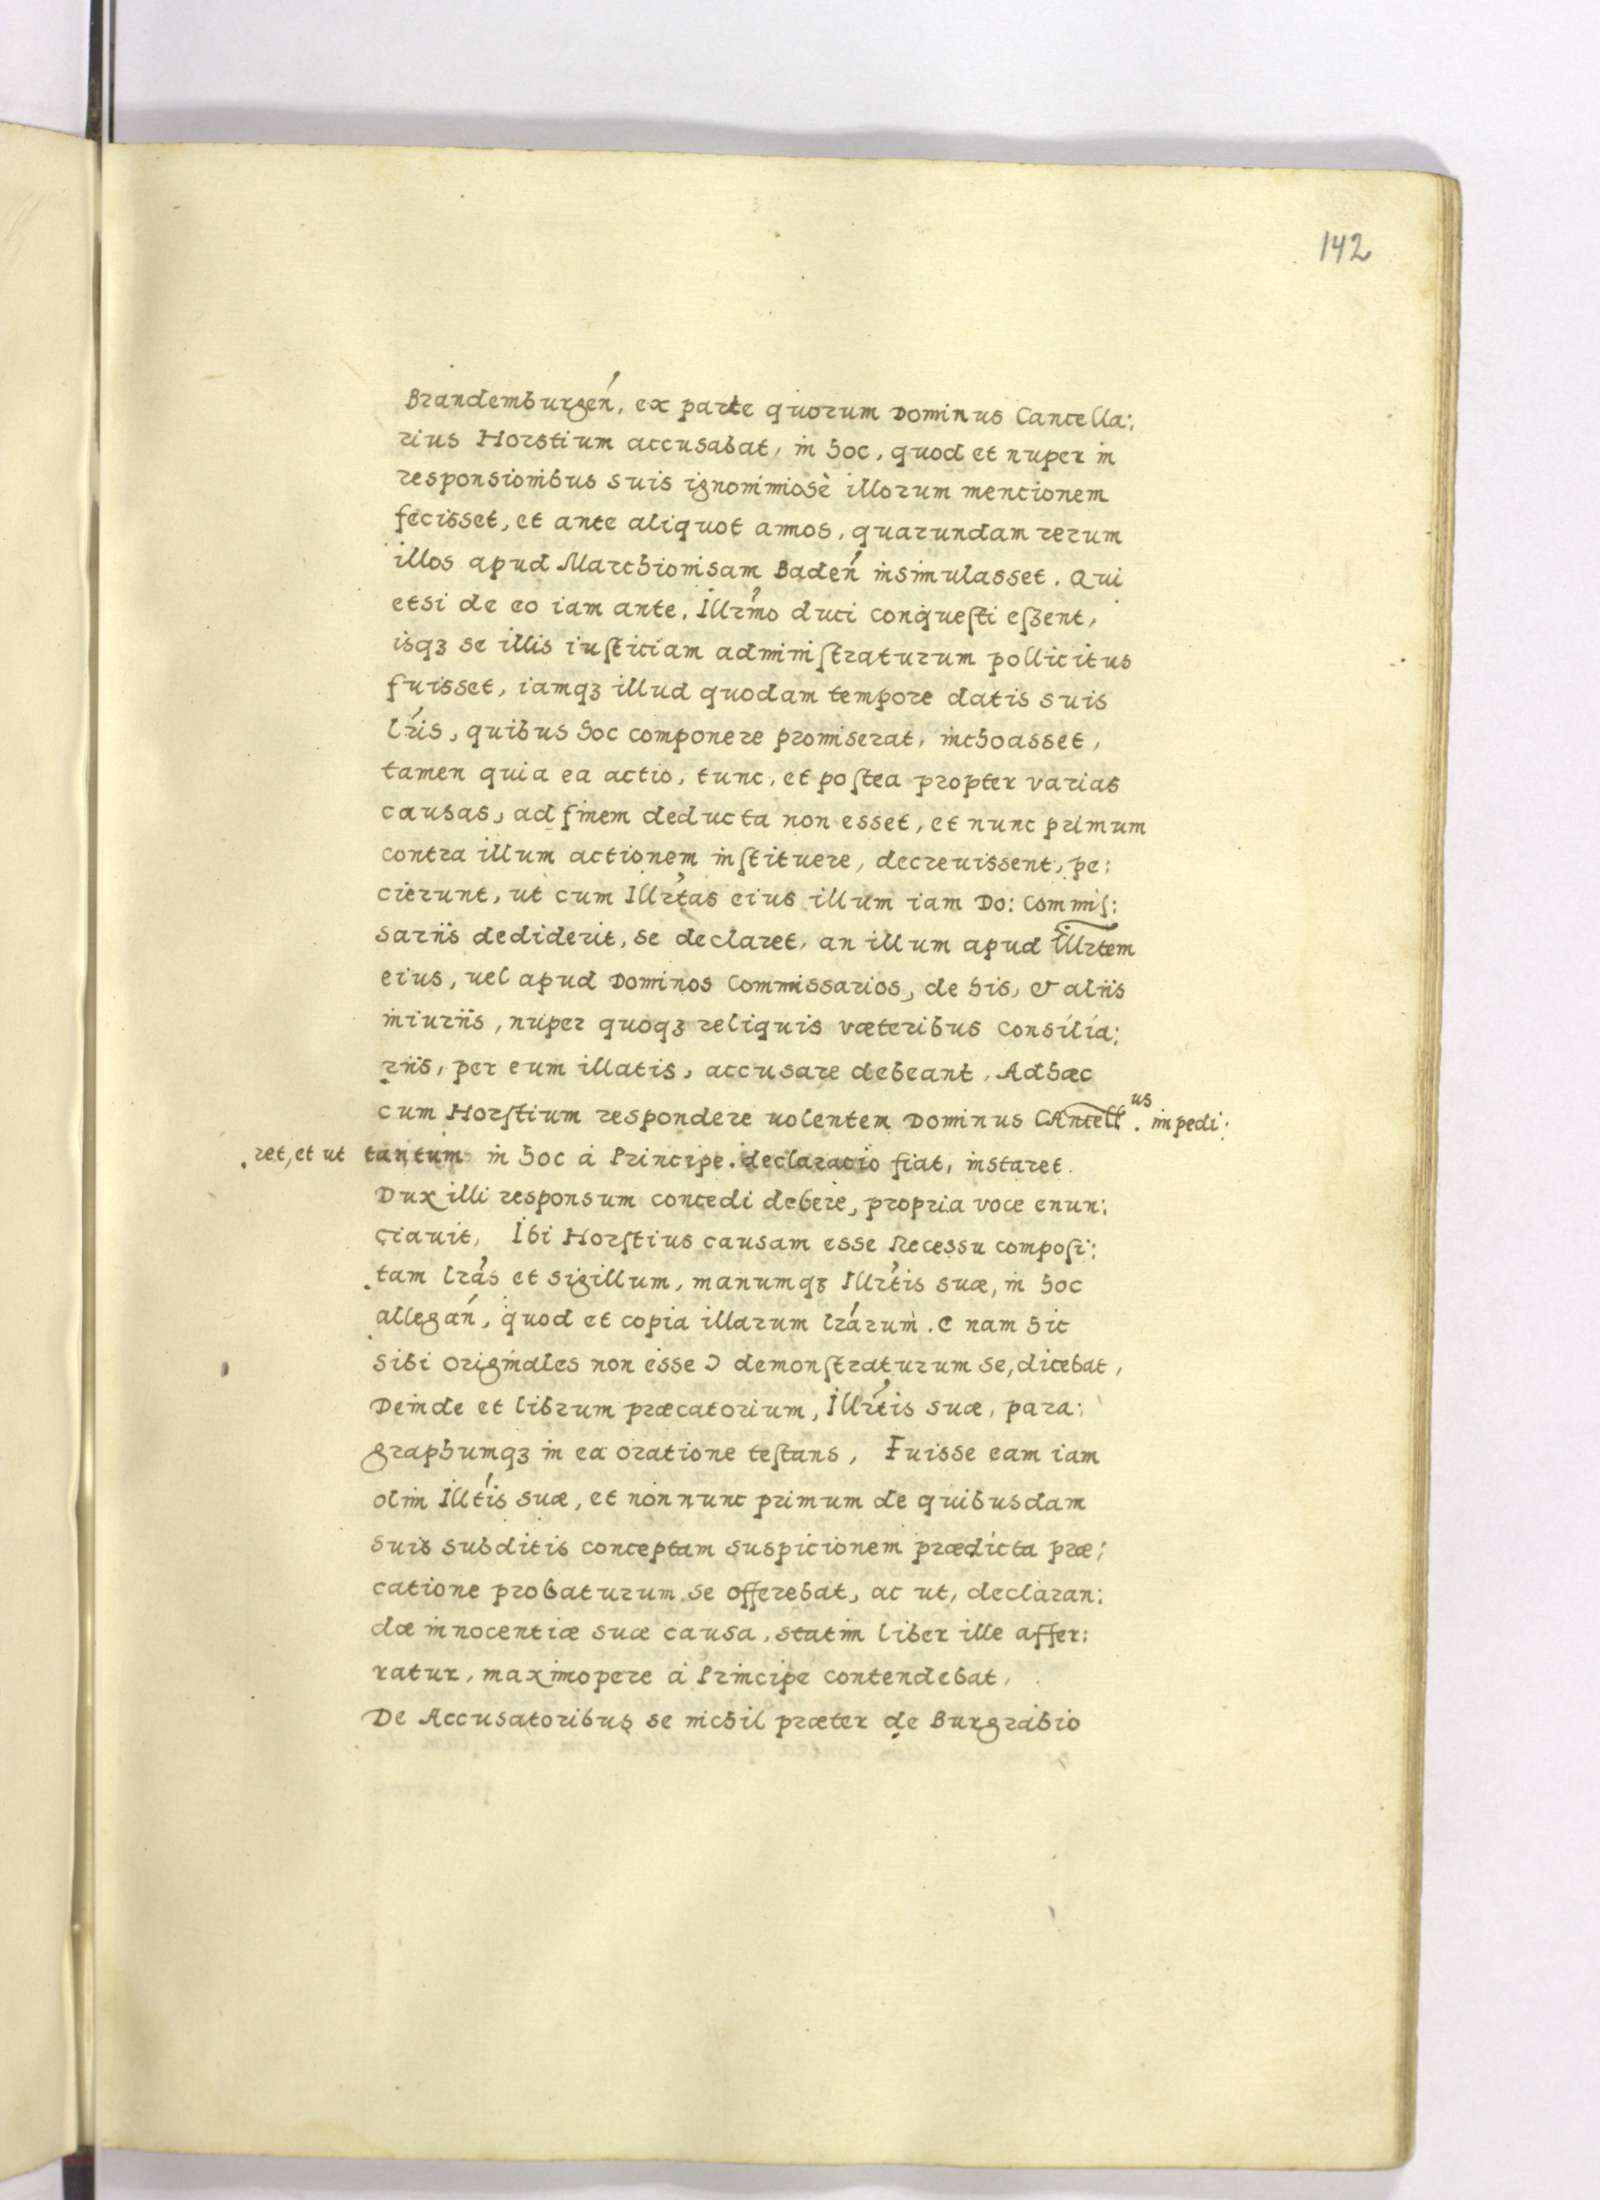 142
Brandemburgeń, ex parte quorum Dominus Cancella:
rius Horstium accusabat, in hoc, quod et nuper in
responsionibus suis ignominiosè illorum mencionem
fecisset, et ante aliquot annos, quarundam rerum
illos apud Marchionisam Badeń insimulasset. Qui
etsi de eo iam ante, Illr̓mo duci conquesti eßent,
isqꝫ se illis iusticiam administraturum pollicitus
fuisset, iamqꝫ illud quodam tempore datis suis
lŕis, quibus hoc componere promiserat, inchoasset,
tamen quia ea actio, tunc, et postea propter varias
causas, ad finem deducta non esset, et nunc primum
contra illum actionem instituere, decreuissent, pe:
cierunt, ut cum Illr̓tas eius illum iam Do: Commis:
sariis dediderit, se declaret, an illum apud Illrtem
eius, uel apud Dominos Commissarios, de his, & aliis
iniuriis, nuper quoqꝫ reliquis væteribus Consilia:
riis, per eum illatis, accusare debeant. Adhæc
cum Horstium respondere uolentem Dominus CAncell.us impedi:
ret, et ut tantum in hoc á Principe. declaracio fiat, instaret.
Dux illi responsum concedi debere, propria voce enun:
ciauit, Ibi Horstius causam esse Recessu composi:
tam lr̓as et sigillum, manumqꝫ Illr̓tis suæ, in hoc
allegań, quod et copia illarum lŕarum. C nam hic
sibi originales non esse Ɔ demonstraturum se, dicebat,
Deinde et librum præcatorium, Illr̓tis suæ, para:
graphumqꝫ in ea oratione testans, Fuisse eam iam
olim Illt́is suæ, et non nunc primum de quibusdam
suis subditis conceptam suspicionem prædicta præ:
catione probaturum se offerebat, ac ut, declaran:
dæ innocentiæ suæ causa, statim liber ille affer:
ratur, maximopere á Principe contendebat,
De Accusatoribus se nichil præter de Burgrabio